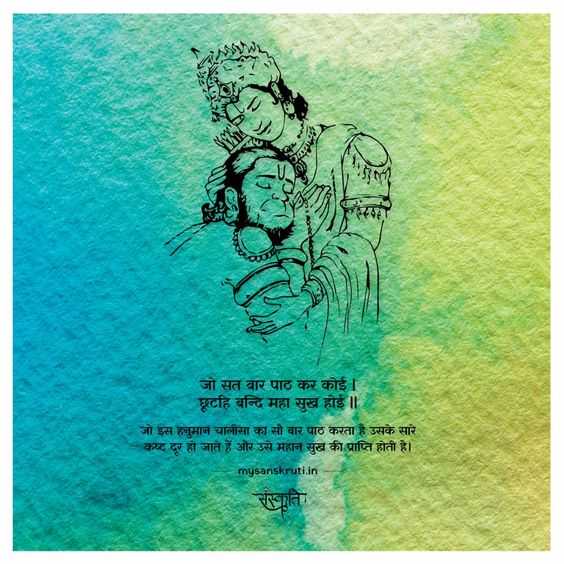 जो सत बार पाठ कर कोई।
छूटहि बन्दि महा सुख होई॥
जो इस हनुमान चालीसा का सौ बार पाठ करता है उसके सारे
कष्ट दूर हो जाते हैं और उसे महान सुख की प्राप्ति होती है।
mysanskruti.in
संस्कृति